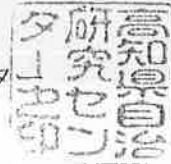 高知県自治
研究セン
ター之印